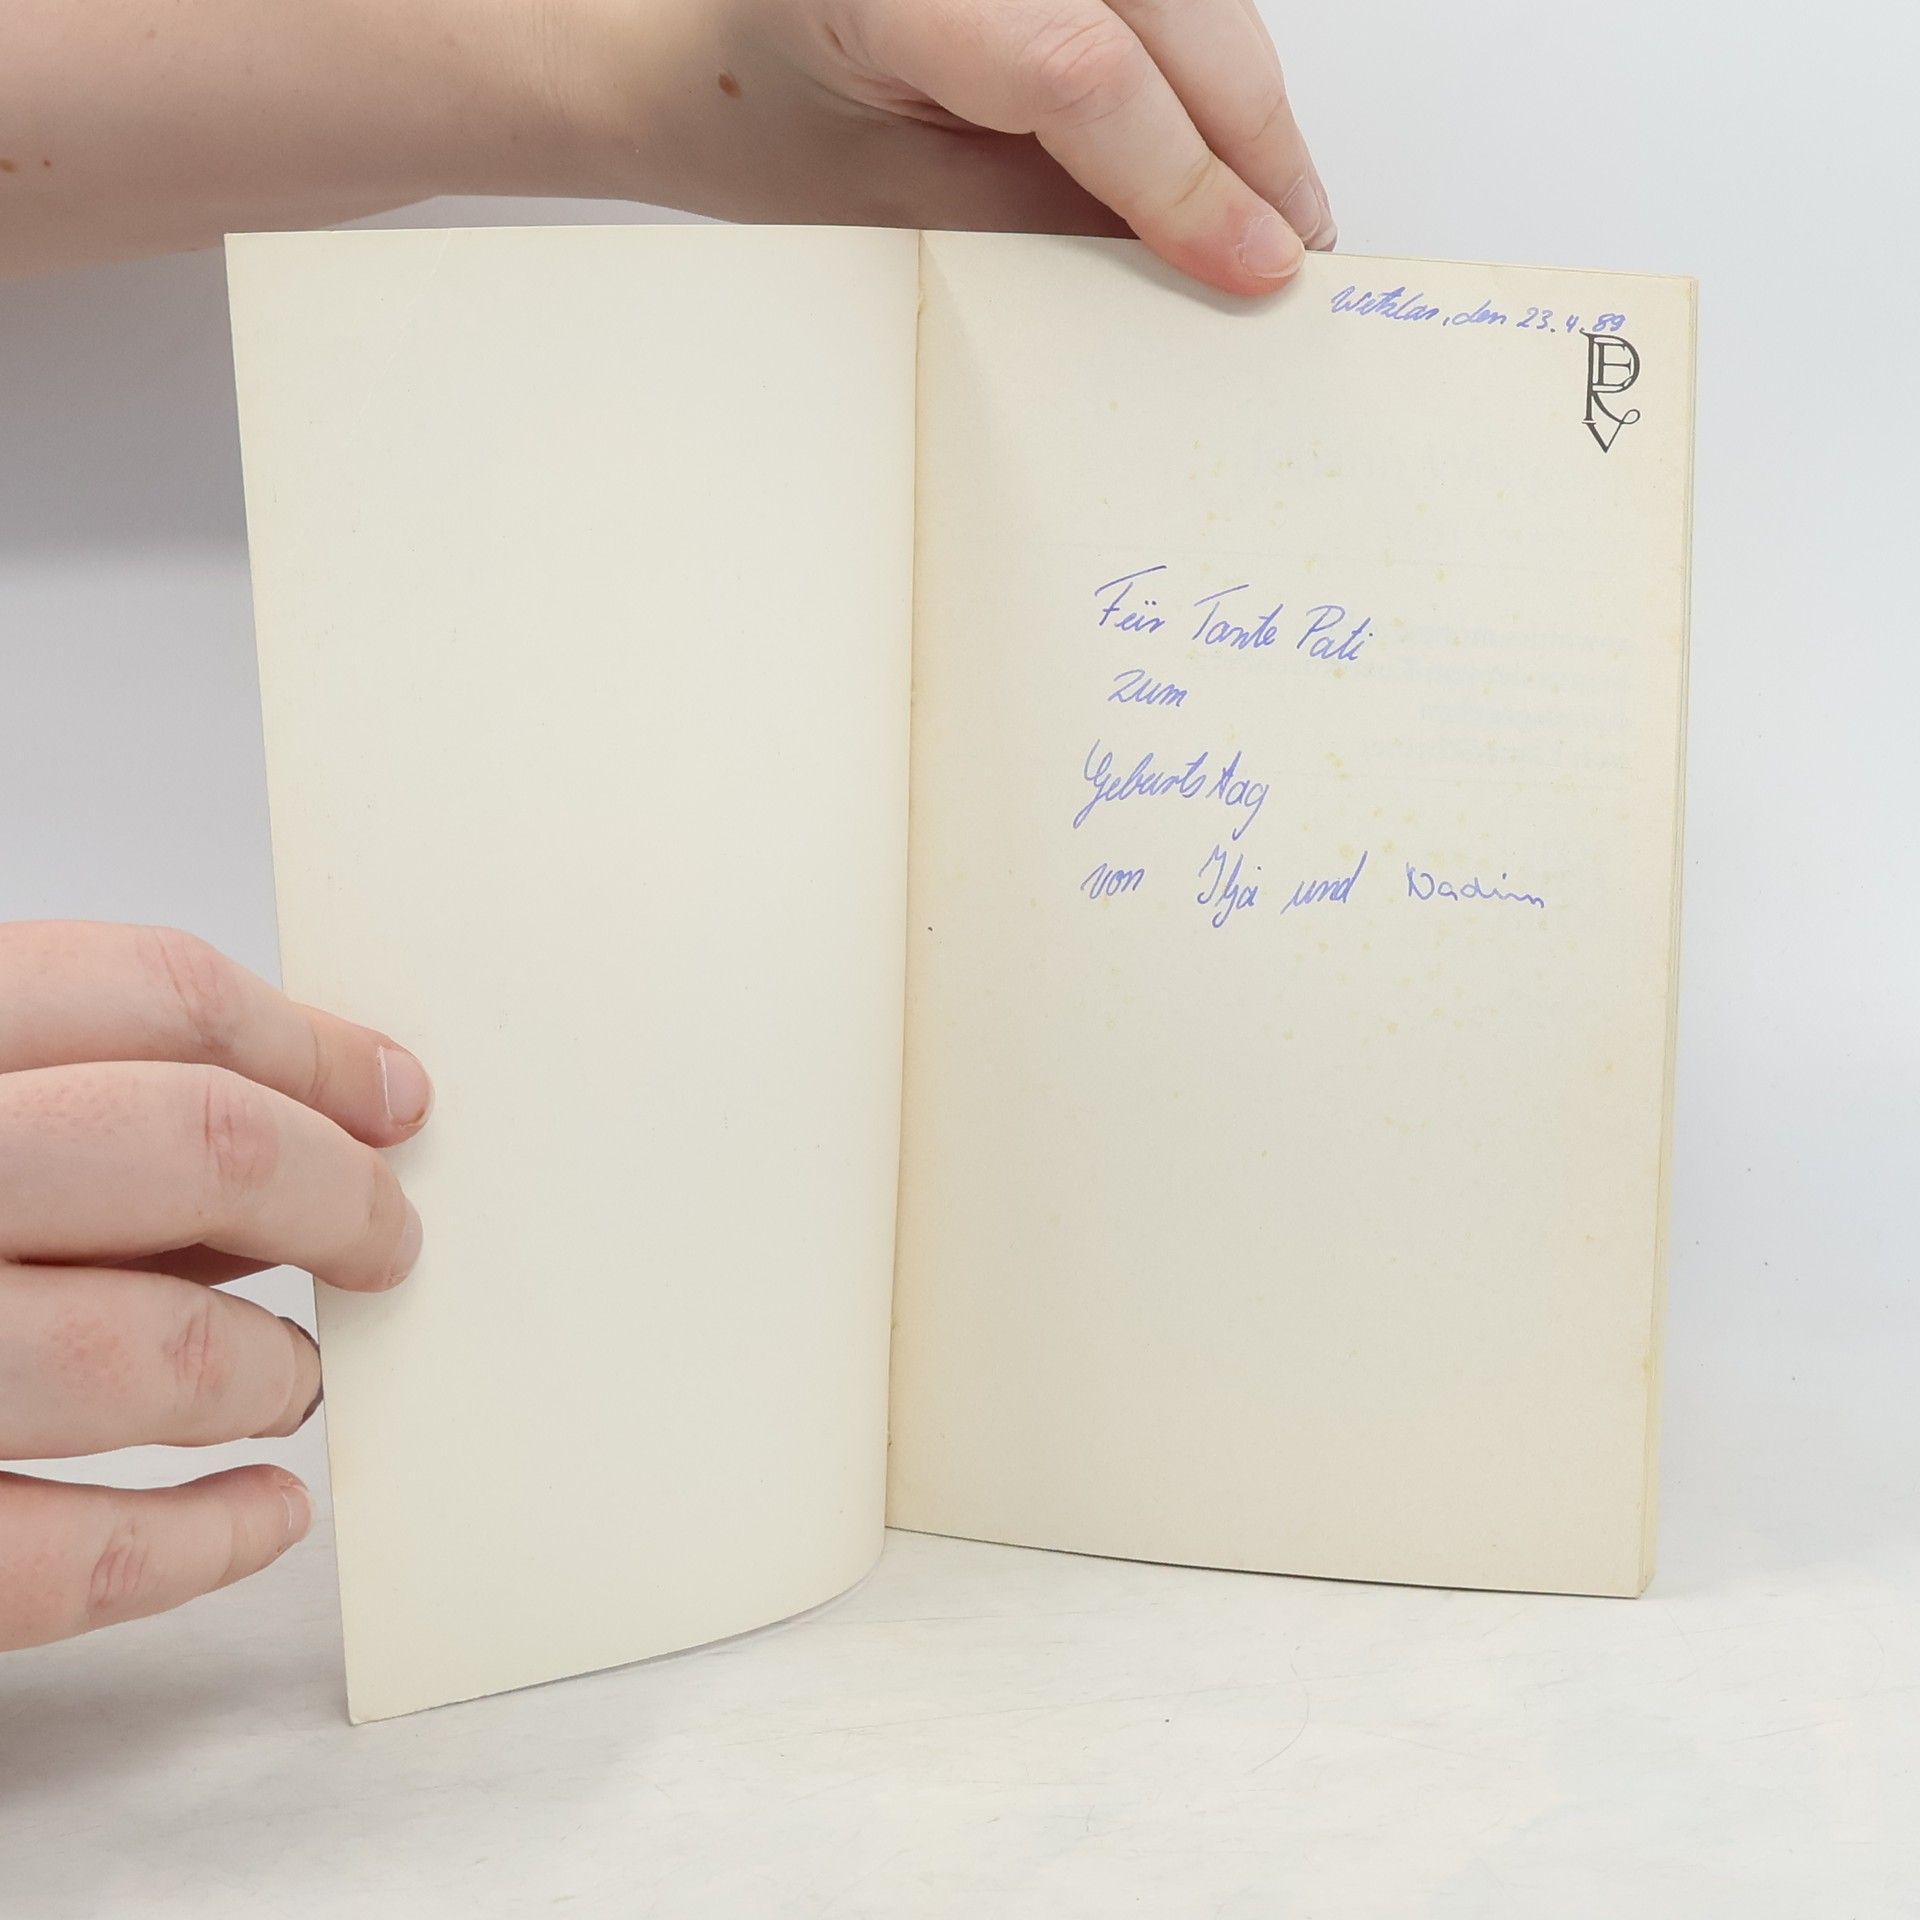 Wetzlar, den 23.4.89
Für Tante Pati
zum
Geburtstag
von Ilja und Nadim